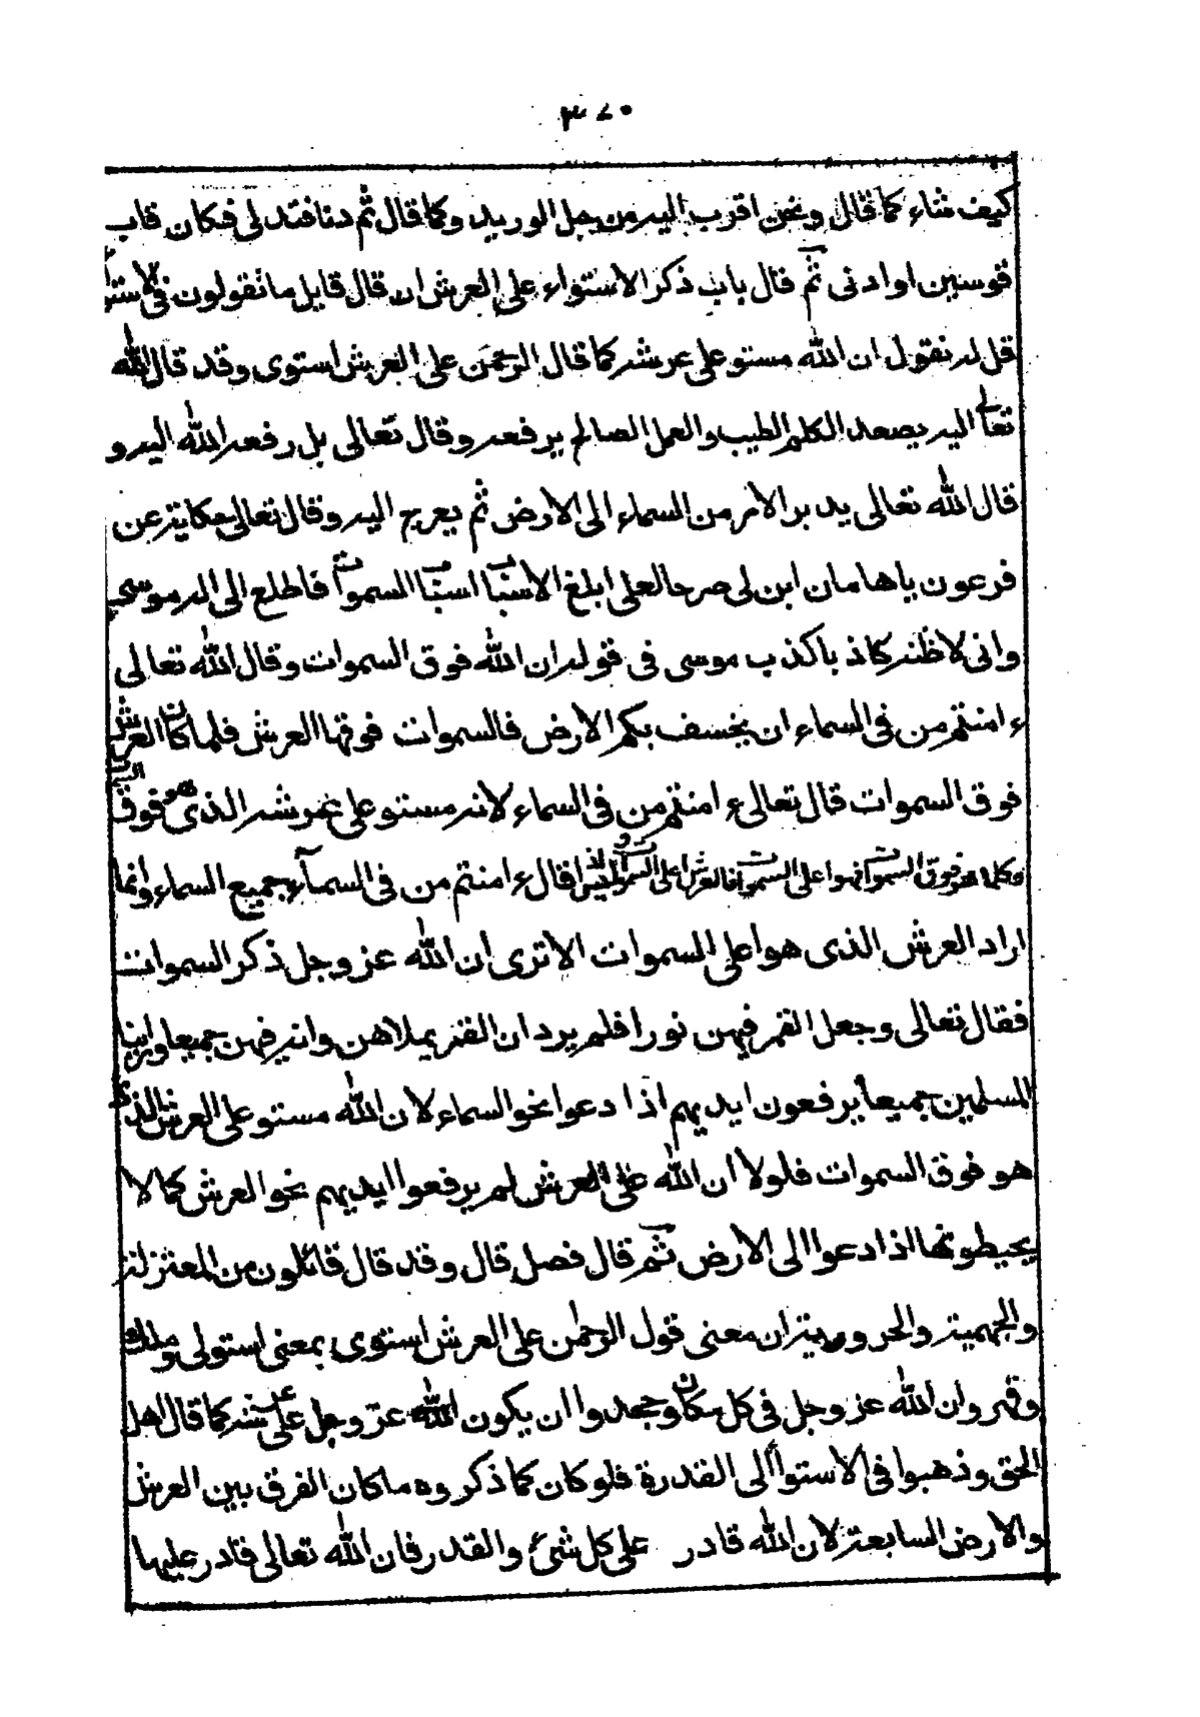 ٣٧٠
كيف شاء كما قال ونحن اقرب اليه من حبل الوريد وكما قال ثم دنا فتدلى فكان قاب
قوسين او ادنى ثم قال باب ذكر الاستواء على العرش ان قال قايل ما تقولون فى الاستوا
قل له نقول ان الله مستو على عرشه كما قال الرحمن على العرش استوى وقد قال الله
تعالى اليه يصعد الكلم الطيب والعمل الصالح يرفعه وقال تعالى بل رفعه الله اليه و
قال الله تعالى يدبر الامر من السماء الى الارض ثم يعرج اليه وقال تعالى حكاية عن
فرعون ياهامان ابن لى صرحا لعلى ابلغ الاسباب اسباب السموات فاطلع الى اله موسى
وانى لاظنه كاذبا كذب موسى فى قوله ان الله فوق السموات وقال الله تعالى
ء امنتم من فى السماء ان يخسف بكم الارض فالسموات فوقها العرش فلما كان العرش
فوق السموات قال تعالى ء امنتم من فى السماء لانه مستو على عرشه الذى هو فوق السموات
وكلما هو فوق السموات فهو اعلى السموات فالعرش اعلى السموات وليس اذا قال ء امنتم من فى السمآء جميع السماء وانما
اراد العرش الذى هو اعلى السموات الا ترى ان الله عز وجل ذكر السموات
فقال تعالى وجعل القمر فيهن نورا فلم يرد ان القمر يملاهن وانه فيهن جميعا وراينا
المسلمين جميعا يرفعون ايديهم اذا دعوا نحو السماء لان الله مستو على العرش الذى
هو فوق السموات فلولا ان الله على العرش لم يرفعوا ايديهم نحو العرش كما لا
يحيطونها اذا دعوا الى الارض ثم قال فصل قال وقد قال قائلون من المعتزلة
والجهمية والحرورية ان معنى قول الرحمن على العرش استوى بمعنى استولى وملك
وقهر وان الله عز وجل فى كل مكان وجحدوا ان يكون الله عز وجل على عرشه كما قال اهل
الحق وذهبوا فى الاستوا الى القدرة فلو كان كما ذكروه ما كان الفرق بين العرش
والارض السابعة لان الله قادر على كل شئ والقدر فان الله تعالى قادر عليها